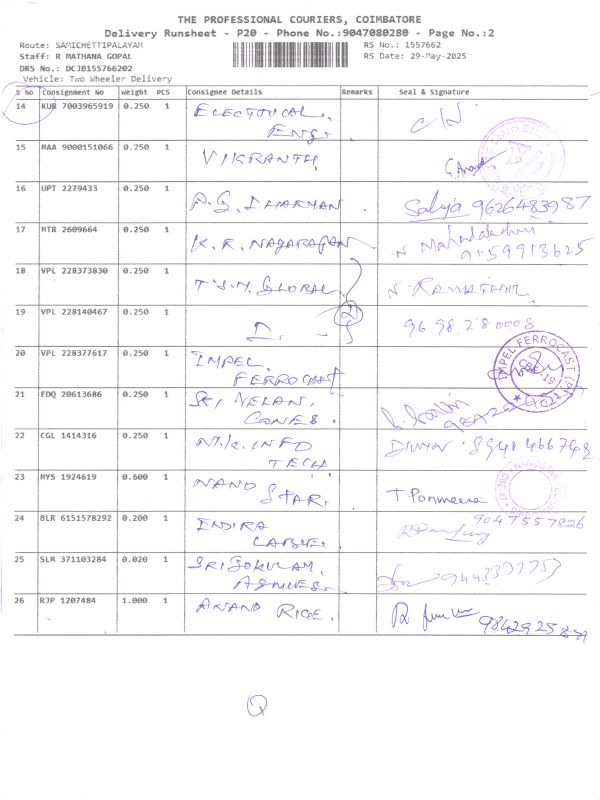 THE PROFESSIONAL COURIERS, COIMBATORE
Delivery Runsheet - P20 - Phone No.:9047080280 - Page No.:2
Route: SAMICHETTIPALAYAM RS No.: 1557662
Staff: R MATHANA GOPAL RS Date: 29-May-2025
DRS No.: DCJB155766202
Vehicle: Two Wheeler Delivery
S No Consignment No Weight PCS Consignee Details Remarks Seal & Signature
14 KUR 7003965919 0.250 1 ELECTRICAL.
ENG.
15 MAA 9000151066 0.250 1 VIKRANTH
16 UPT 2279433 0.250 1 9626483987
17 MTR 2609664 0.250 1 K.R. NAGARAGAN N Mahalakshmi
9159913625
18 VPL 228373830 0.250 1 T.S.M. GLOBAL
19 VPL 228140467 0.250 1 D. 2 9698280008
20 VPL 228377617 0.250 1 IMPEL IMPEL FERROCAST
FERROCAST CBE - 19
21 EDQ 20613686 0.250 1 SRI VELAN.
CONES.
22 CGL 1414316 0.250 1 M.K. INFO
TECH
23 MYS 1924619 0.600 1 NAND T Ponmeena
STAR.
24 BLR 6151578292 0.200 1 INDIRA 9047557826
25 SLM 371103284 0.020 1 SRI GOKULAM
26 RJP 1207484 1.000 1 ANAND RICE.